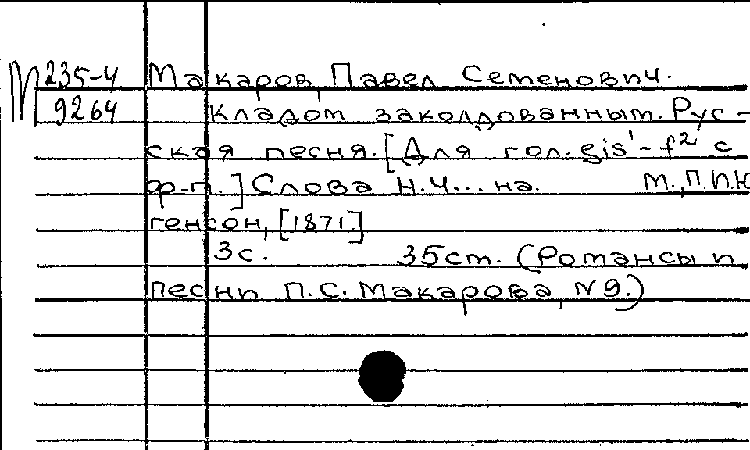 М 235-4 Макаров, Павел Семенович.
9264 Кладом заколдованным. Рус-
ская песня. [Для гол. gis¹-f² с
ф-п.] Слова Н.Ч...на. М., П. Юр
генсон, [1871]
3с. 35ст. (Романсы и
песни П.С. Макарова, N9.)